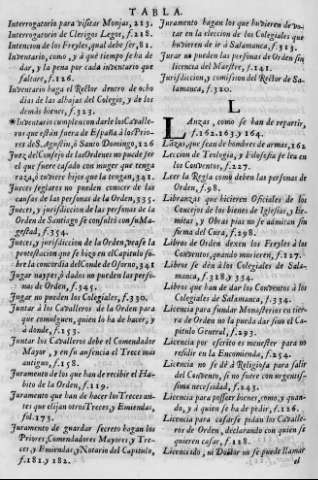 TABLA.
Interrogatorio para visitar Monjas, 213.
Interrogatorio de Clerigos Legos, f.218.
Intencion de los Freyles, qual debe ser, 81.
Inventario, como, y à què tiempo se ha de
dar, y la pena por cada inventario que
faltare, f.126.
Inventario haga el Retor dentro de ocho
dias de las alhajas del Colegio, y de los
demàs bienes, f.323.
*Inventario cumplen con darle los Cavalle-
ros que estàn fuera de España à los Prio-
res de S. Agustin, ò Santo Domingo, 126
Juez del Consejo de las Ordenes no puede ser
el que fuere casado con muger que tenga
raza, ò tuviere hijos que la tengan, 341.
Jueces seglares no pueden conocer de las
causas de las personas de la Orden, 335.
Jueces, y jurisdiccion de las personas de la
Orden de Santiago se consultò con su Ma-
gestad, f.354.
Jueces, y jurisdiccion de la Orden, vease la
protestacion que se hizo en el Capitulo so-
bre la concordia del Conde de Osorno, 341
Jugar naypes, ò dados no pueden las perso-
nas de Orden, f.345.
Jugar no pueden los Colegiales, f.330.
Juntar à los Cavalleros de la Orden para
que comulguen, quien lo ha de hacer, y
à donde, f.153.
Juntar los Cavalleros debe el Comendador
Mayor, y en su ausencia el Trece mas
antiguo, f.158.
Juramento de los que han de recibir el Ha-
bito de la Orden, f.119.
Juramento que han de hacer los Treces an-
tes que elijan otros Treces, y Emiendas,
fol.175.
Juramento de guardar secreto hagan los
Priores, Comendadores Mayores, y Tre-
ces, y Emiendas, y Notario del Capitulo,
f.181. y 182.
Juramento hagan los que huvieren de vo-
tar en la eleccion de los Colegiales que
huvieren de ir à Salamanca, f.313.
Jurar no pueden las personas de Orden sin
licencia del Maestre, f.141.
Jurisdiccion, y comision del Retor de Sa-
lamanca, f.320.
L
LAnzas, como se han de repartir,
f.162.163. y 164.
Lazas, que sean de hombres de armas, 162
Leccion de Teologia, y Filosofia se lea en
los Conventos, f.227.
Leer la Regla como deben las personas de
Orden, f.98.
Libranzas que hicieren Oficiales de los
Concejos de los bienes de Iglesias, y Er-
mitas, y Obras pias no se admitan sin
firma del Cura, f.298.
Libros de Orden dexen los Freyles à los
Conventos, quando murieren, f.127.
Libros se dèn à los Colegiales de Sala-
manca, f.328. y 334.
Libros que han de dar los Conventos à los
Colegiales de Salamanca, f.334.
Licencia para fundar Monasterios en tier-
ra de Orden no la pueda dar sino el Ca-
pitulo General, f.293.
Licencia por escrito es menester para no
residir en la Encomienda, f.254.
Licencia no se dè à Religiosa para salir
del Convento, si no fuere con urgentis-
sima necesidad, f.243.
Licencia para posseer bienes, como, y quan-
do, y à quien se ha de pedir, f.126.
Licencia para casarse pidan los Cavalle-
ros de Orden, declarando con quien se
quieren casar, f.128.
Licenciado, ni Doctor no se puede llamar
el